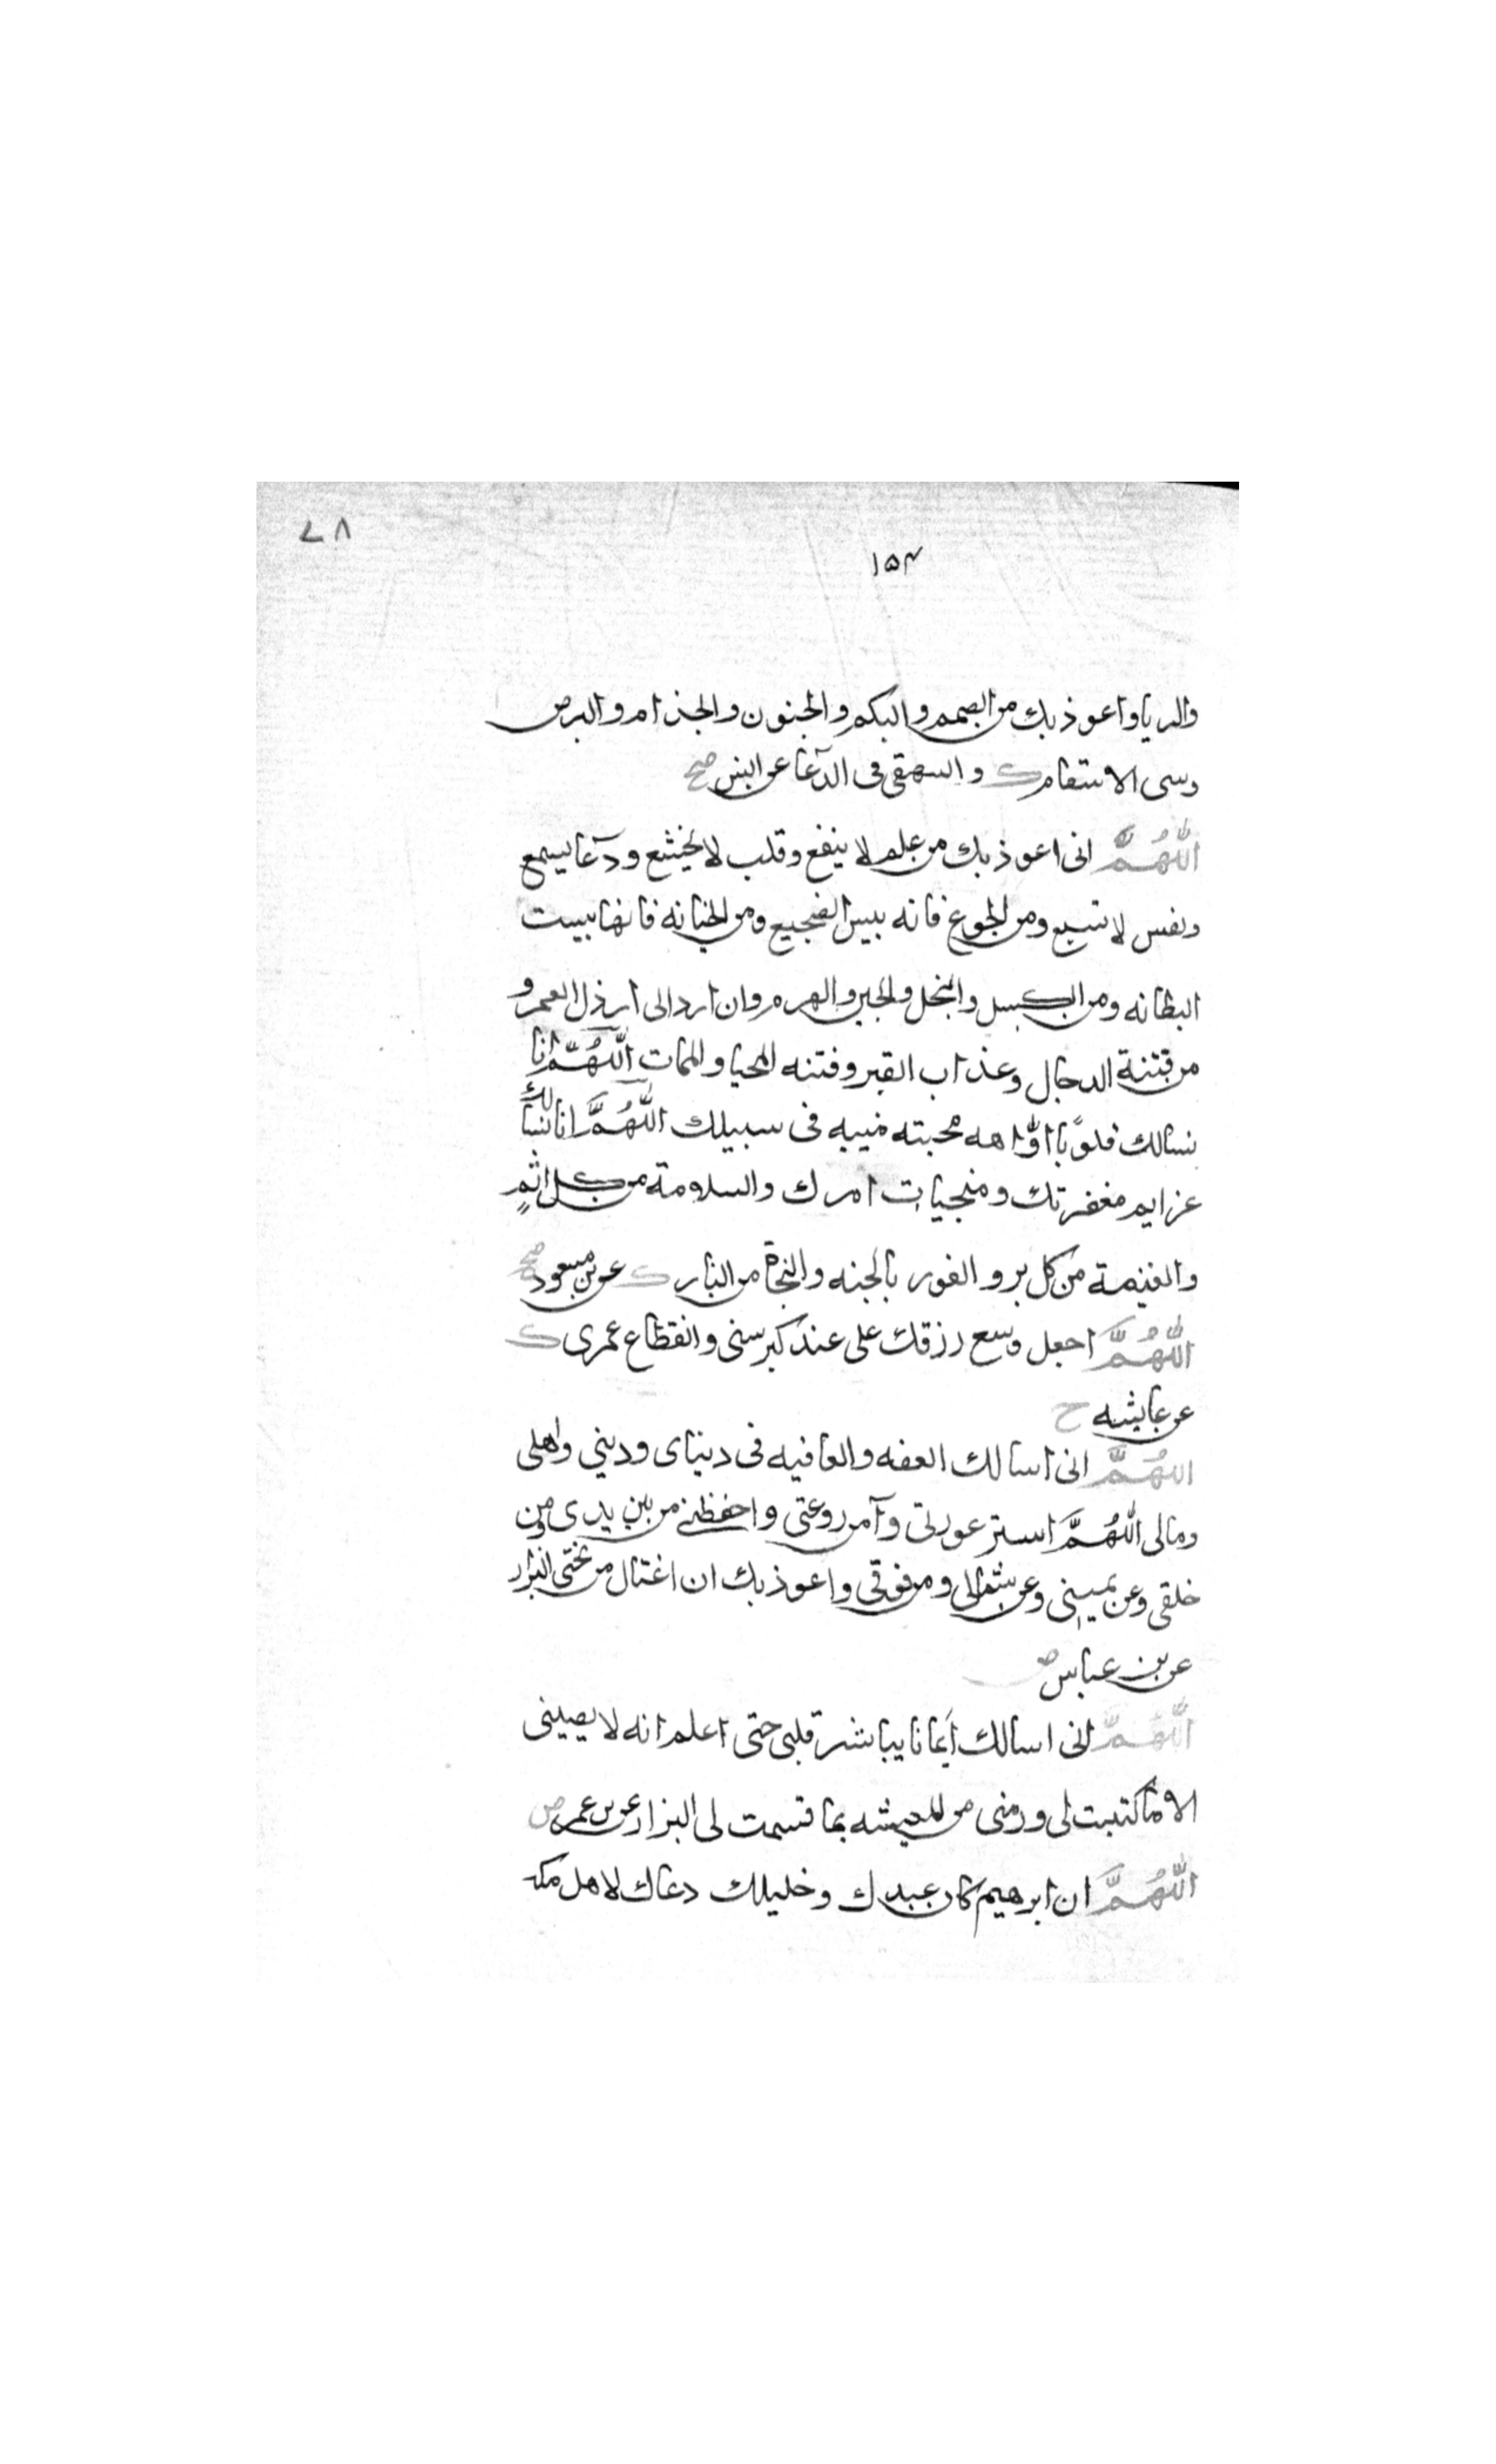 ٧٨
١٥٣
والريا واعوذ بك من الصمم والبكم والجنون والجذام والبرص
وسى الاسقام ك والبيهقى فى الدعا عن انس صح
اللهُمَّ انى اعوذ بك من علم لا ينفع وقلب لا يخشع ودعا يسمع
ونفس لا تشبع ومن الجوع فانه بيس الضجيع ومن الخيانه فانها بيست
البطانه ومن الكسل والبخل والجبن والهرم وان ارد الى ارذل العمر و
من فتنة الدجال وعذاب القبر وفتنه المحيا والممات اللهُمَّ انا
نسالك قلوبا اواهه مخبته منيبه فى سبيلك اللهُمَّ انا نسالك
عزايم مغفرتك ومنجيات امرك والسلامة من كل اثمٍ
والغنيمة من كل بر والفوز بالجنه والنجاة من النار ك عن بن مسعود صح
اللهُمَّ اجعل وسع رزقك على عند كبر سنى وانقطاع عمرى ك
عن عايشه ح
اللهُمَّ انى اسالك العفه والعافيه فى دنياى ودينى واهلى
ومالى اللهُمَّ استر عورتى وآمن روعتى واحفظنى من بين يدى ومن
خلفى وعن يمينى وعن شمالى ومن فوقى واعوذ بك ان اغتال من تحتى البزار
عن بن عباس ض
اللهُمَّ انى اسالك ايمانا يباشر قلبى حتى اعلم انه لا يصيبنى
الا ما كتبت لى ورضنى من المعيشه بما قسمت لى البزار عن بن عمر ض
اللهُمَّ ان ابرهيم كان عبدك وخليلك دعاك لاهل مكه